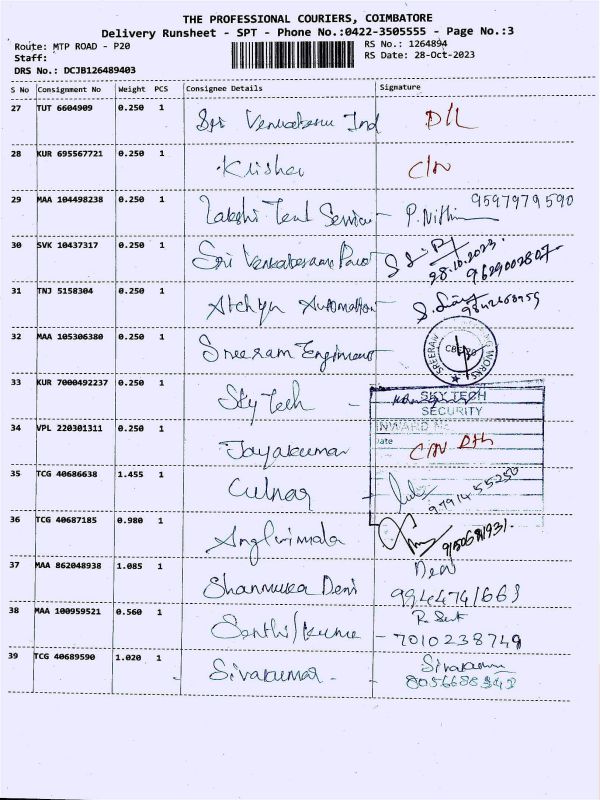 THE PROFESSIONAL COURIERS, COIMBATORE
Delivery Runsheet - SPT - Phone No.:0422-3505555 - Page No.:3
Route: MTP ROAD - P20 RS No.: 1264894
Staff: RS Date: 28-Oct-2023
DRS No.: DCJB126489403
S No Consignment No Weight PCS Consignee Details Signature
27 TUT 6604909 0.250 1 Sri Venkateswa Ind D/L
28 KUR 695567721 0.250 1 Krisha C/N
29 MAA 104498238 0.250 1 Lakshi Tent Service - P. Nithin 9597979590
30 SVK 10437317 0.250 1 Sri 28.10.2023. 9629002807
31 TNJ 5158304 0.250 1 Automation
32 MAA 105306380 0.250 1 Sreeram SREERAM WORKS
33 KUR 7000492237 0.250 1 Sky Tech - SKY TECH
SECURITY
INWARD
34 VPL 220301311 0.250 1 Jayakumar Date C/N
35 TCG 40686638 1.455 1 Culnar - 9791455250
36 TCG 40687185 0.980 1
37 MAA 862048938 1.085 1 Shanmuka Devi Devi
9944741663
38 MAA 100959521 0.560 1 Senthilkumar
- 7010238749
39 TCG 40689590 1.020 1 Sivakumar - Sivakumar
8056688343